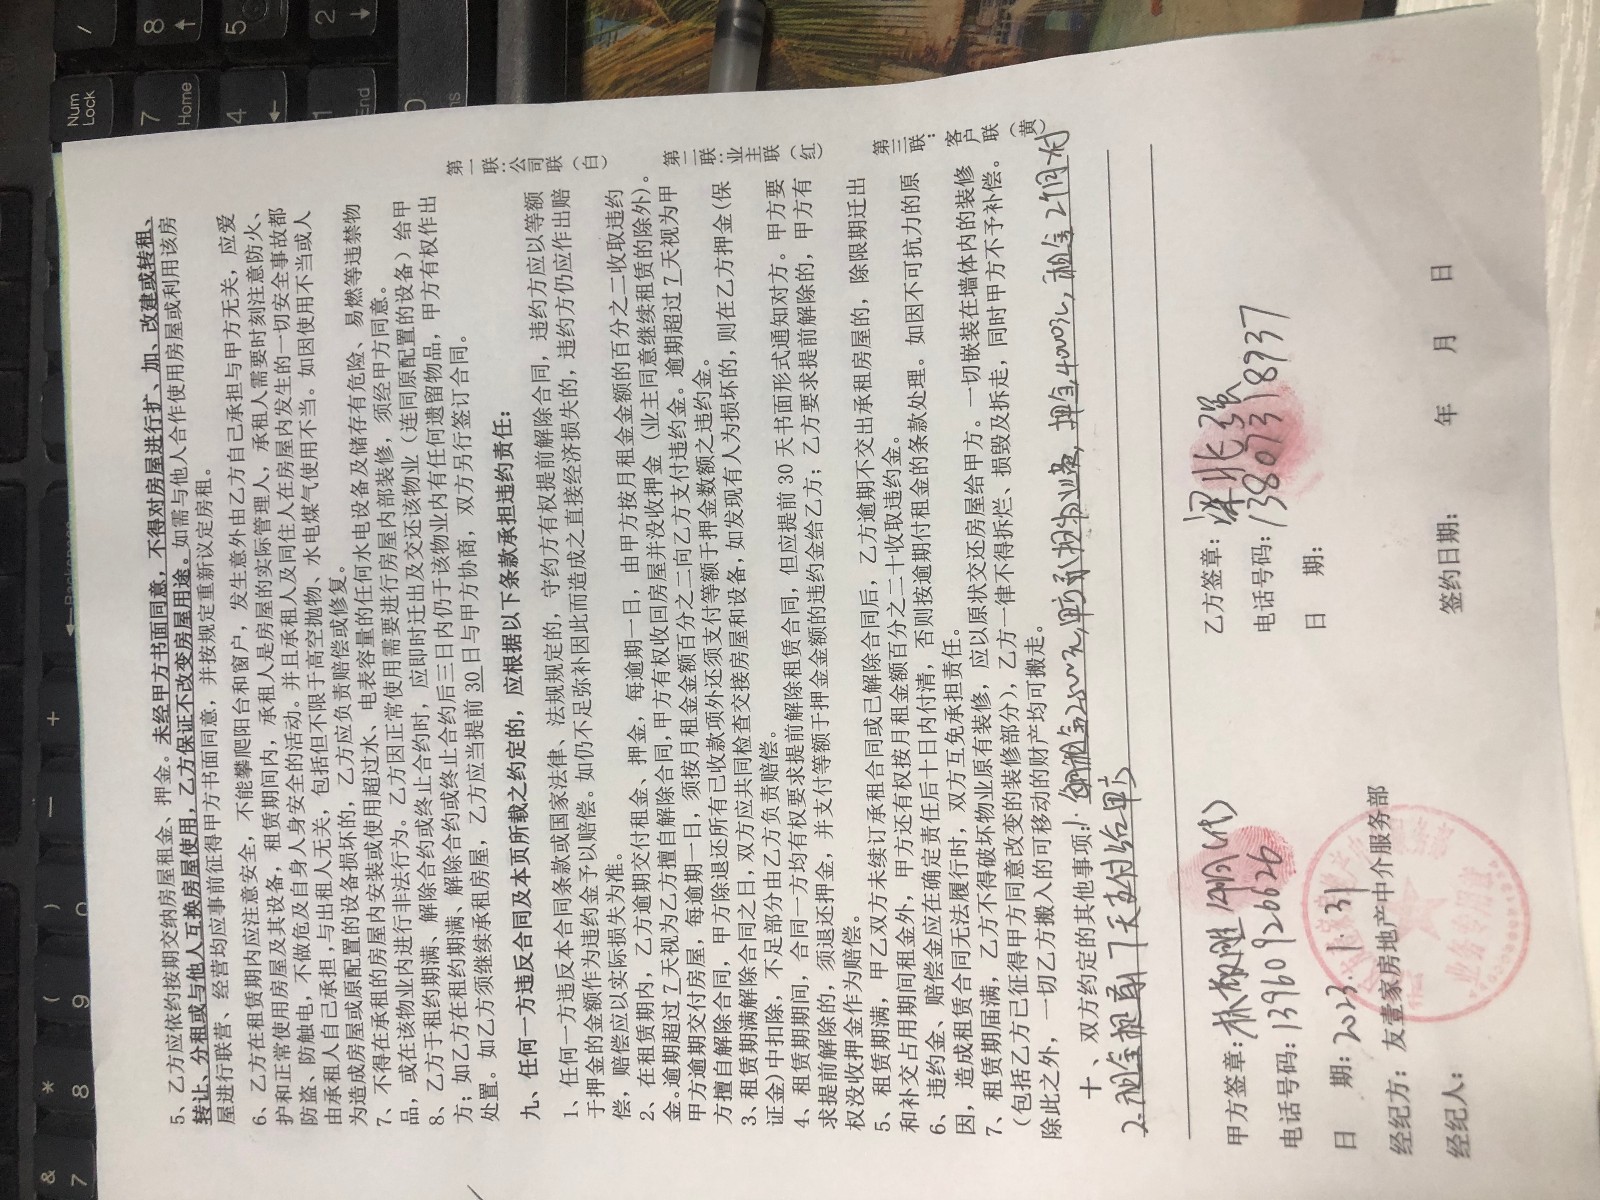 5、乙方应依约按期交纳房屋租金、押金。未经甲方书面同意，不得对房屋进行扩、加、改建或转租、
转让、分租或与他人互换房屋使用，乙方保证不改变房屋用途。如需与他人合作使用房屋或利用该房
屋进行联营、经营均应事前征得甲方书面同意，并按规定重新议定房租。
6、乙方在租赁期内应注意安全，不能攀爬阳台和窗户，发生意外由乙方自己承担与甲方无关，应爱
护和正常使用房屋及其设备，租赁期间内，承租人是房屋的实际管理人，承租人需要时刻注意防火、
防盗、防触电，不做危及自身人身安全的活动。并且承租人及同住人在房屋内发生的一切安全事故都
由承租人自己承担，与出租人无关，包括但不限于高空抛物、水电煤气使用不当。如因使用不当或人
为造成房屋或原配置的设备损坏的，乙方应负责赔偿或修复。
7、不得在承租的房屋内安装或使用超过水、电表容量的任何水电设备及储存有危险、易燃等违禁物
品，或在该物业内进行非法行为。乙方因正常使用需要进行房屋内部装修，须经甲方同意。
8、乙方于租约期满、解除合约或终止合约时，应即时迁出及交还该物业（连同原配置的设备）给甲
方；如乙方在租约期满、解除合约或终止合约后三日内仍于该物业内有任何遗留物品，甲方有权作出
处置。如乙方须继续承租房屋，乙方应当提前 30 日与甲方协商，双方另行签订合同。
九、任何一方违反合同及本页所载之约定的，应根据以下条款承担违约责任：
1、任何一方违反本合同条款或国家法律、法规规定的，守约方有权提前解除合同，违约方应以等额
于押金的金额作为违约金予以赔偿。如仍不足弥补因此而造成之直接经济损失的，违约方仍应作出赔
偿，赔偿应以实际损失为准。
2、在租赁期内，乙方逾期交付租金、押金，每逾期一日，由甲方按月租金金额的百分之二收取违约
金。逾期超过 7 天视为乙方擅自解除合同，甲方有权收回房屋并没收押金（业主同意继续租赁的除外）。
甲方逾期交付房屋，每逾期一日，须按月租金金额百分之二向乙方支付违约金。逾期超过 7 天视为甲
方擅自解除合同，甲方除退还所有已收款项外还须支付等额于押金数额之违约金。
3、租赁期满解除合同之日，双方应共同检查交接房屋和设备，如发现有人为损坏的，则在乙方押金（保
证金）中扣除，不足部分由乙方负责赔偿。
4、租赁期期间，合同一方均有权要求提前解除租赁合同，但应提前 30 天书面形式通知对方。甲方要
求提前解除的，须退还押金，并支付等额于押金金额的违约金给乙方；乙方要求提前解除的，甲方有
权没收押金作为赔偿。
5、租赁期满，甲乙双方未续订承租合同或已解除合同后，乙方逾期不交出承租房屋的，除限期迁出
和补交占用期间租金外，甲方还有权按月租金额百分之二十收取违约金。
6、违约金、赔偿金应在确定责任后十日内付清，否则按逾期付租金的条款处理。如因不可抗力的原
因，造成租赁合同无法履行时，双方互免承担责任。
7、租赁期届满，乙方不得破坏物业原有装修，应以原状交还房屋给甲方。一切嵌装在墙体内的装修
（包括乙方已征得甲方同意改变的装修部分），乙方一律不得拆烂、损毁及拆走，同时甲方不予补偿。
除此之外，一切乙方搬入的可移动的财产均可搬走。
十、双方约定的其他事项：1、 租金2500元，甲方承担物业费，押金4000元，租金2个月一付
2.租金提前7天支付给甲方
第一联：公司联（白）
第二联：业主联（红）
第三联：客户联（黄）
甲方签章： （代）
电话号码：13960926626
日 期：2023.1.31
经纪方：友壹家房地产中介服务部
经纪人：
乙方签章：梁兆强
电话号码：13807318937
日 期：
签约日期： 年 月 日
业务专用章